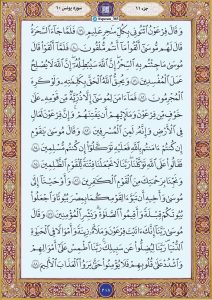 جزء ۱۱
سوره یونس ۱۰
وَقَالَ فِرْعَوْنُ ائْتُونِي بِكُلِّ سَاحِرٍ عَلِيمٍ ۷۹ فَلَمَّا جَاءَ السَّحَرَةُ
قَالَ لَهُم مُّوسَىٰ أَلْقُوا مَا أَنتُم مُّلْقُونَ ۸۰ فَلَمَّا أَلْقَوْا قَالَ
مُوسَىٰ مَا جِئْتُم بِهِ السِّحْرُ إِنَّ اللَّهَ سَيُبْطِلُهُ إِنَّ اللَّهَ لَا يُصْلِحُ
عَمَلَ الْمُفْسِدِينَ ۸۱ وَيُحِقُّ اللَّهُ الْحَقَّ بِكَلِمَاتِهِ وَلَوْ كَرِهَ
الْمُجْرِمُونَ ۸۲ فَمَا آمَنَ لِمُوسَىٰ إِلَّا ذُرِّيَّةٌ مِّن قَوْمِهِ عَلَىٰ
خَوْفٍ مِّن فِرْعَوْنَ وَمَلَئِهِمْ أَن يَفْتِنَهُمْ وَإِنَّ فِرْعَوْنَ لَعَالٍ
فِي الْأَرْضِ وَإِنَّهُ لَمِنَ الْمُسْرِفِينَ ۸۳ وَقَالَ مُوسَىٰ يَا قَوْمِ
إِن كُنتُمْ آمَنتُم بِاللَّهِ فَعَلَيْهِ تَوَكَّلُوا إِن كُنتُم مُّسْلِمِينَ ۸۴
فَقَالُوا عَلَى اللَّهِ تَوَكَّلْنَا رَبَّنَا لَا تَجْعَلْنَا فِتْنَةً لِّلْقَوْمِ الظَّالِمِينَ ۸۵
وَنَجِّنَا بِرَحْمَتِكَ مِنَ الْقَوْمِ الْكَافِرِينَ ۸۶ وَأَوْحَيْنَا إِلَىٰ
مُوسَىٰ وَأَخِيهِ أَن تَبَوَّآ لِقَوْمِكُمَا بِمِصْرَ بُيُوتًا وَاجْعَلُوا
بُيُوتَكُمْ قِبْلَةً وَأَقِيمُوا الصَّلَاةَ وَبَشِّرِ الْمُؤْمِنِينَ ۸۷ وَقَالَ
مُوسَىٰ رَبَّنَا إِنَّكَ آتَيْتَ فِرْعَوْنَ وَمَلَأَهُ زِينَةً وَأَمْوَالًا فِي الْحَيَاةِ
الدُّنْيَا رَبَّنَا لِيُضِلُّوا عَن سَبِيلِكَ رَبَّنَا اطْمِسْ عَلَىٰ أَمْوَالِهِمْ
وَاشْدُدْ عَلَىٰ قُلُوبِهِمْ فَلَا يُؤْمِنُوا حَتَّىٰ يَرَوُا الْعَذَابَ الْأَلِيمَ ۸۸
۲۱۸